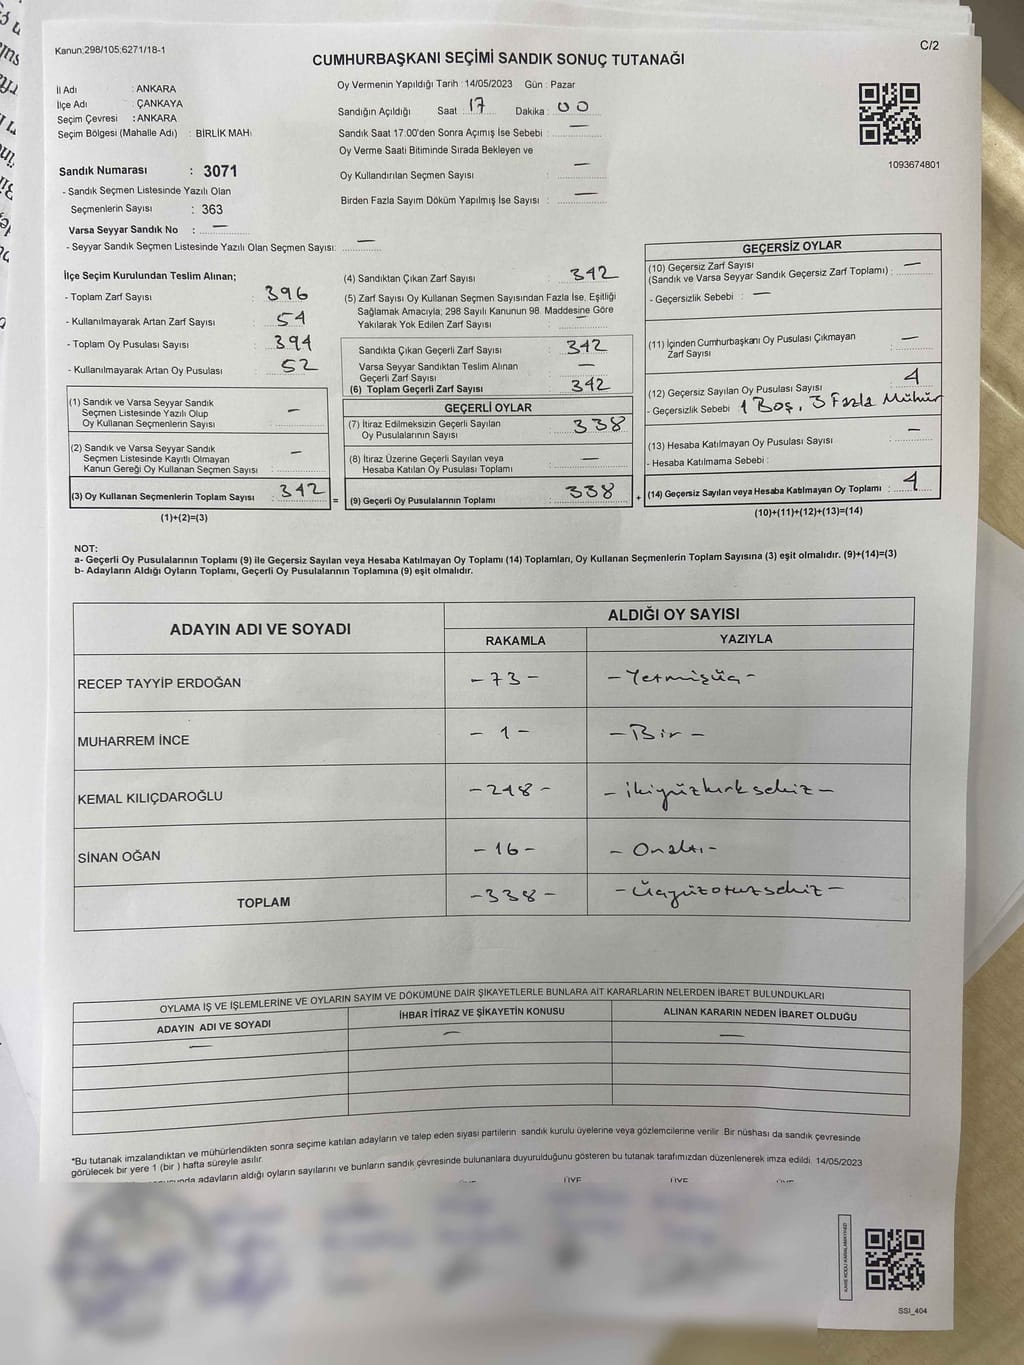 Kanun:298/105;6271/18-1
C/2
CUMHURBAŞKANI SEÇİMİ SANDIK SONUÇ TUTANAĞI
İl Adı : ANKARA
İlçe Adı : ÇANKAYA
Seçim Çevresi : ANKARA
Seçim Bölgesi (Mahalle Adı) : BİRLİK MAH.
Oy Vermenin Yapıldığı Tarih : 14/05/2023 Gün : Pazar
Sandığın Açıldığı Saat 17 Dakika : 00
Sandık Saat 17:00'den Sonra Açımış İse Sebebi : —
Oy Verme Saati Bitiminde Sırada Bekleyen ve
Oy Kullandırılan Seçmen Sayısı : —
Birden Fazla Sayım Döküm Yapılmış İse Sayısı : —
1093674801
Sandık Numarası : 3071
- Sandık Seçmen Listesinde Yazılı Olan
Seçmenlerin Sayısı : 363
Varsa Seyyar Sandık No : —
- Seyyar Sandık Seçmen Listesinde Yazılı Olan Seçmen Sayısı: —
İlçe Seçim Kurulundan Teslim Alınan;
- Toplam Zarf Sayısı : 396
- Kullanılmayarak Artan Zarf Sayısı : 54
- Toplam Oy Pusulası Sayısı : 394
- Kullanılmayarak Artan Oy Pusulası : 52
(1) Sandık ve Varsa Seyyar Sandık
Seçmen Listesinde Yazılı Olup
Oy Kullanan Seçmenlerin Sayısı : —
(2) Sandık ve Varsa Seyyar Sandık
Seçmen Listesinde Kayıtlı Olmayan
Kanun Gereği Oy Kullanan Seçmen Sayısı : —
(3) Oy Kullanan Seçmenlerin Toplam Sayısı : 342
(1)+(2)=(3)
(4) Sandıktan Çıkan Zarf Sayısı : 342
(5) Zarf Sayısı Oy Kullanan Seçmen Sayısından Fazla İse, Eşitliği
Sağlamak Amacıyla; 298 Sayılı Kanunun 98. Maddesine Göre
Yakılarak Yok Edilen Zarf Sayısı : —
Sandıkta Çıkan Geçerli Zarf Sayısı : 342
Varsa Seyyar Sandıktan Teslim Alınan
Geçerli Zarf Sayısı : —
(6) Toplam Geçerli Zarf Sayısı : 342
GEÇERLİ OYLAR
(7) İtiraz Edilmeksizin Geçerli Sayılan
Oy Pusulalarının Sayısı : 338
(8) İtiraz Üzerine Geçerli Sayılan veya
Hesaba Katılan Oy Pusulası Toplamı : —
= (9) Geçerli Oy Pusulalarının Toplamı : 338
GEÇERSİZ OYLAR
(10) Geçersiz Zarf Sayısı
(Sandık ve Varsa Seyyar Sandık Geçersiz Zarf Toplamı) : —
- Geçersizlik Sebebi : —
(11) İçinden Cumhurbaşkanı Oy Pusulası Çıkmayan
Zarf Sayısı : —
(12) Geçersiz Sayılan Oy Pusulası Sayısı : 4
- Geçersizlik Sebebi : 1 Boş, 3 Fazla Mühür
(13) Hesaba Katılmayan Oy Pusulası Sayısı : —
- Hesaba Katılmama Sebebi :
+ (14) Geçersiz Sayılan veya Hesaba Katılmayan Oy Toplamı : 4
(10)+(11)+(12)+(13)=(14)
NOT:
a- Geçerli Oy Pusulalarının Toplamı (9) ile Geçersiz Sayılan veya Hesaba Katılmayan Oy Toplamı (14) Toplamları, Oy Kullanan Seçmenlerin Toplam Sayısına (3) eşit olmalıdır. (9)+(14)=(3)
b- Adayların Aldığı Oyların Toplamı, Geçerli Oy Pusulalarının Toplamına (9) eşit olmalıdır.
ADAYIN ADI VE SOYADI
ALDIĞI OY SAYISI
RAKAMLA YAZIYLA
RECEP TAYYİP ERDOĞAN -73- -Yetmişüç-
MUHARREM İNCE -1- -Bir-
KEMAL KILIÇDAROĞLU -248- -ikiyüzkırksekiz-
SİNAN OĞAN -16- -Onaltı-
TOPLAM -338- -Üçyüzotuzsekiz-
OYLAMA İŞ VE İŞLEMLERİNE VE OYLARIN SAYIM VE DÖKÜMÜNE DAİR ŞİKAYETLERLE BUNLARA AİT KARARLARIN NELERDEN İBARET BULUNDUKLARI
ADAYIN ADI VE SOYADI İHBAR İTİRAZ VE ŞİKAYETİN KONUSU ALINAN KARARIN NEDEN İBARET OLDUĞU
— — —
*Bu tutanak imzalandıktan ve mühürlendikten sonra seçime katılan adayların ve talep eden siyasi partilerin sandık kurulu üyelerine veya gözlemcilerine verilir. Bir nüshası da sandık çevresinde
görülecek bir yere 1 (bir ) hafta süreyle asılır.
adayların aldığı oyların sayılarını ve bunların sandık çevresinde bulunanlara duyurulduğunu gösteren bu tutanak tarafımızdan düzenlenerek imza edildi. 14/05/2023
SSI_404